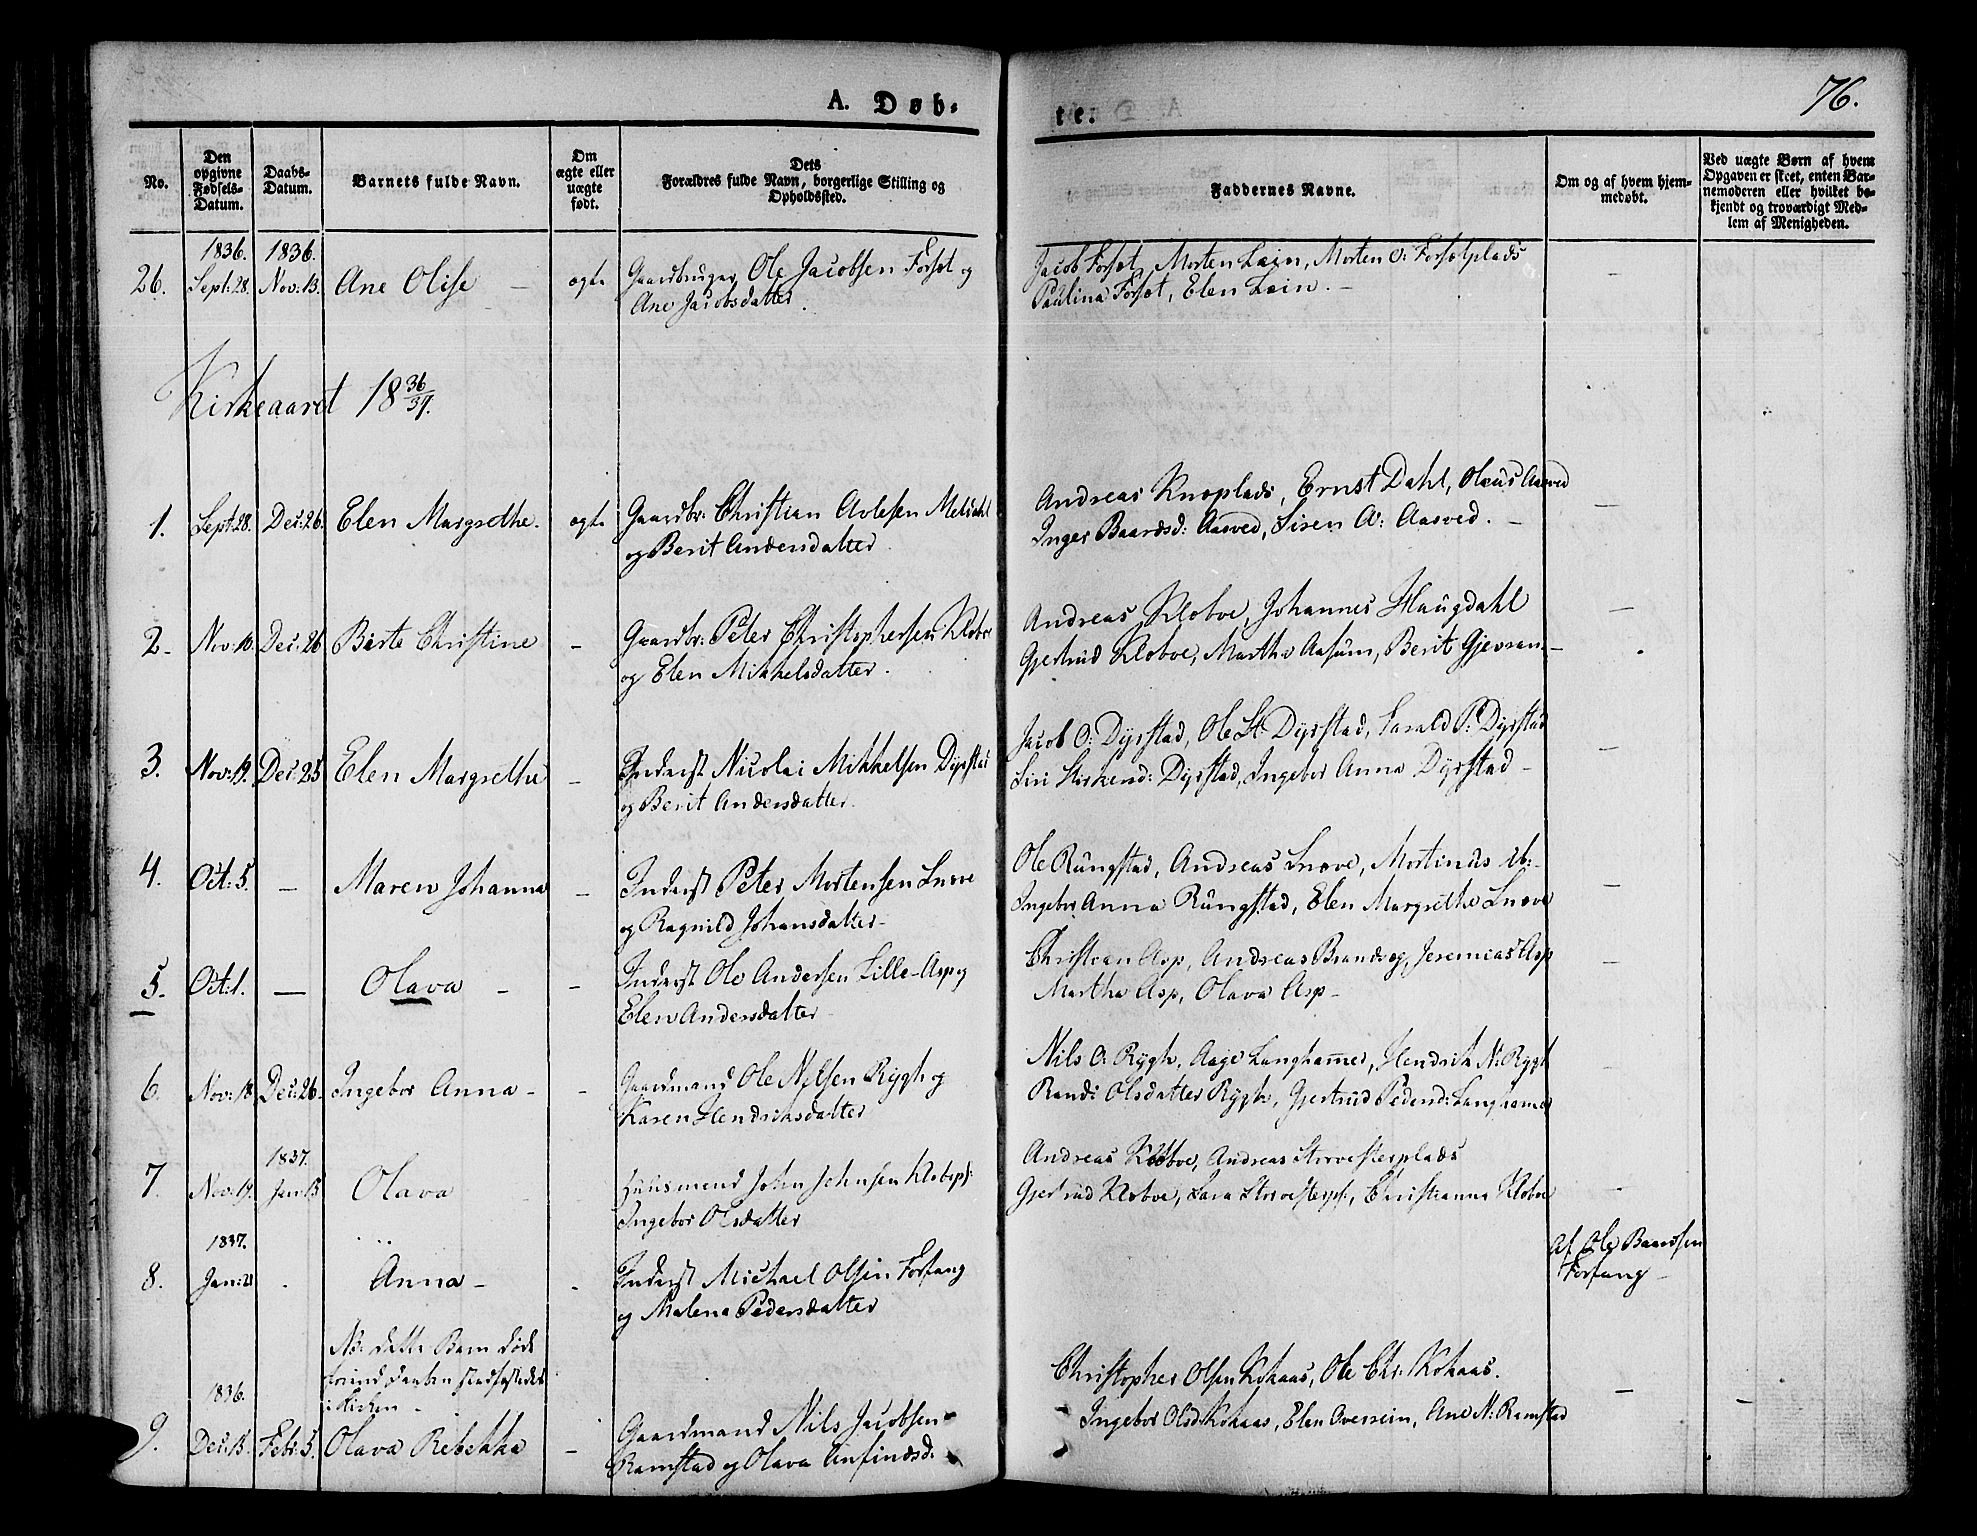 A. Døb-
te.
76.
No.
Den
opgivne
Fødsels-
Datum.
Daabs-
Datum.
Barnets fulde Navn.
Om
ægte eller
uægte
født.
Dets
Forældres fulde Navn, borgerlige Stilling og
Opholdssted.
Faddernes Navne.
Om og af hvem hjem-
medøbt.
Ved uægte Børn af hvem
Opgaven er skeet, enten Bar-
nemoderen eller hvilket be-
kjendt og troværdigt Med-
lem af Menigheden.
1836. 1836.
26. Sept: 28. Nov: 13. Ane Olise - ægte Gaardbruger Ole Jacobsen Forsæt og
Ane Jacobsdatter.
Jacob Forsæt, Morten Lein, Morten O: Forsætplads
Paulina Forsæt, Elen Lein. -
Kirkeaaret 18 36/37.
1. Sept: 28. Dec: 26. Elen Margrethe. ægte Gaardbr: Christian Avlesen Meldahl
og Berit Andersdatter.
Andreas Knoplads, Ernst Dahl, Olaus Aasved
Inger Baardsd: Aasved, Siren A: Aasved. -
2. Nov: 10. Dec: 26 Birte Christine - Gaardbr: Peter Christophersen Kloboe
og Elen Mikkelsdatter.
Andreas Kloboe, Johannes Haugdahl
Gjertrud Kloboe, Martha Aasum, Berit Gjevran. -
3. Nov: 19. Dec: 25 Elen Margrethe - Inderst Nicolai Mikkelsen Dyrstad
og Berit Andersdatter.
Jacob O: Dyrstad, Ole St: Dyrstad, Harald P: Dyrstad
Siri Dyrstad, Ingebor Anna Dyrstad -
4. Oct: 5. - Maren Johanna - Inderst Peter Mortensen Snove
og Ragnild Johansdatter -
Ole Rungstad, Andreas Snove, Mortinus ib: -
Ingebor Anna Rungstad, Elen Margrethe Snove
5. Oct: 1. - Olava - - Inderst Ole Andersen Lille-Asp og
Elen Andersdatter -
Christian Asp, Andreas Brandseg, Jeremias Asp
Martha Asp, Olava Asp -
6. Nov: 18. Dec: 26. Ingebor Anna - - Gaardmand Ole Nilsen Rygh og
Karen Hendriksdatter
Nils O: Rygh, Aage Langhamer, Hendrik N: Rygh
Randi Olsdatter Rygh, Gjertrud Pedersd: Langhamer
1837.
7. Nov: 19. Jan: 15 Olava Huusmand John Johnsen Klobopl:
Ingebor Olsdatter
Andreas Kloboe, Andreas Storvesterplads
Gjertrud Kloboe, Sara Storvesterpl:, Christianna Kloboe
1837.
8. Jan: 21 - Anna - - Inderst Michael Olsen Forfang
og Malena Pedersdatter
Af Ole Baardsen
Forfang -
NB: dette Barn døde
førend Daaben stadfæstedes
i Kirken -
1836.
9. Dec: 15. Febr: 5. Olava Rebekka - Gaardmand Nils Jacobsen
Ramstad og Olava Anfindsd:
Christopher Olsen Kohaas, Ole Chr: Kohaas.
Ingebor Olsd: Kohaas, Elen Overrein, Ane N: Ramstad